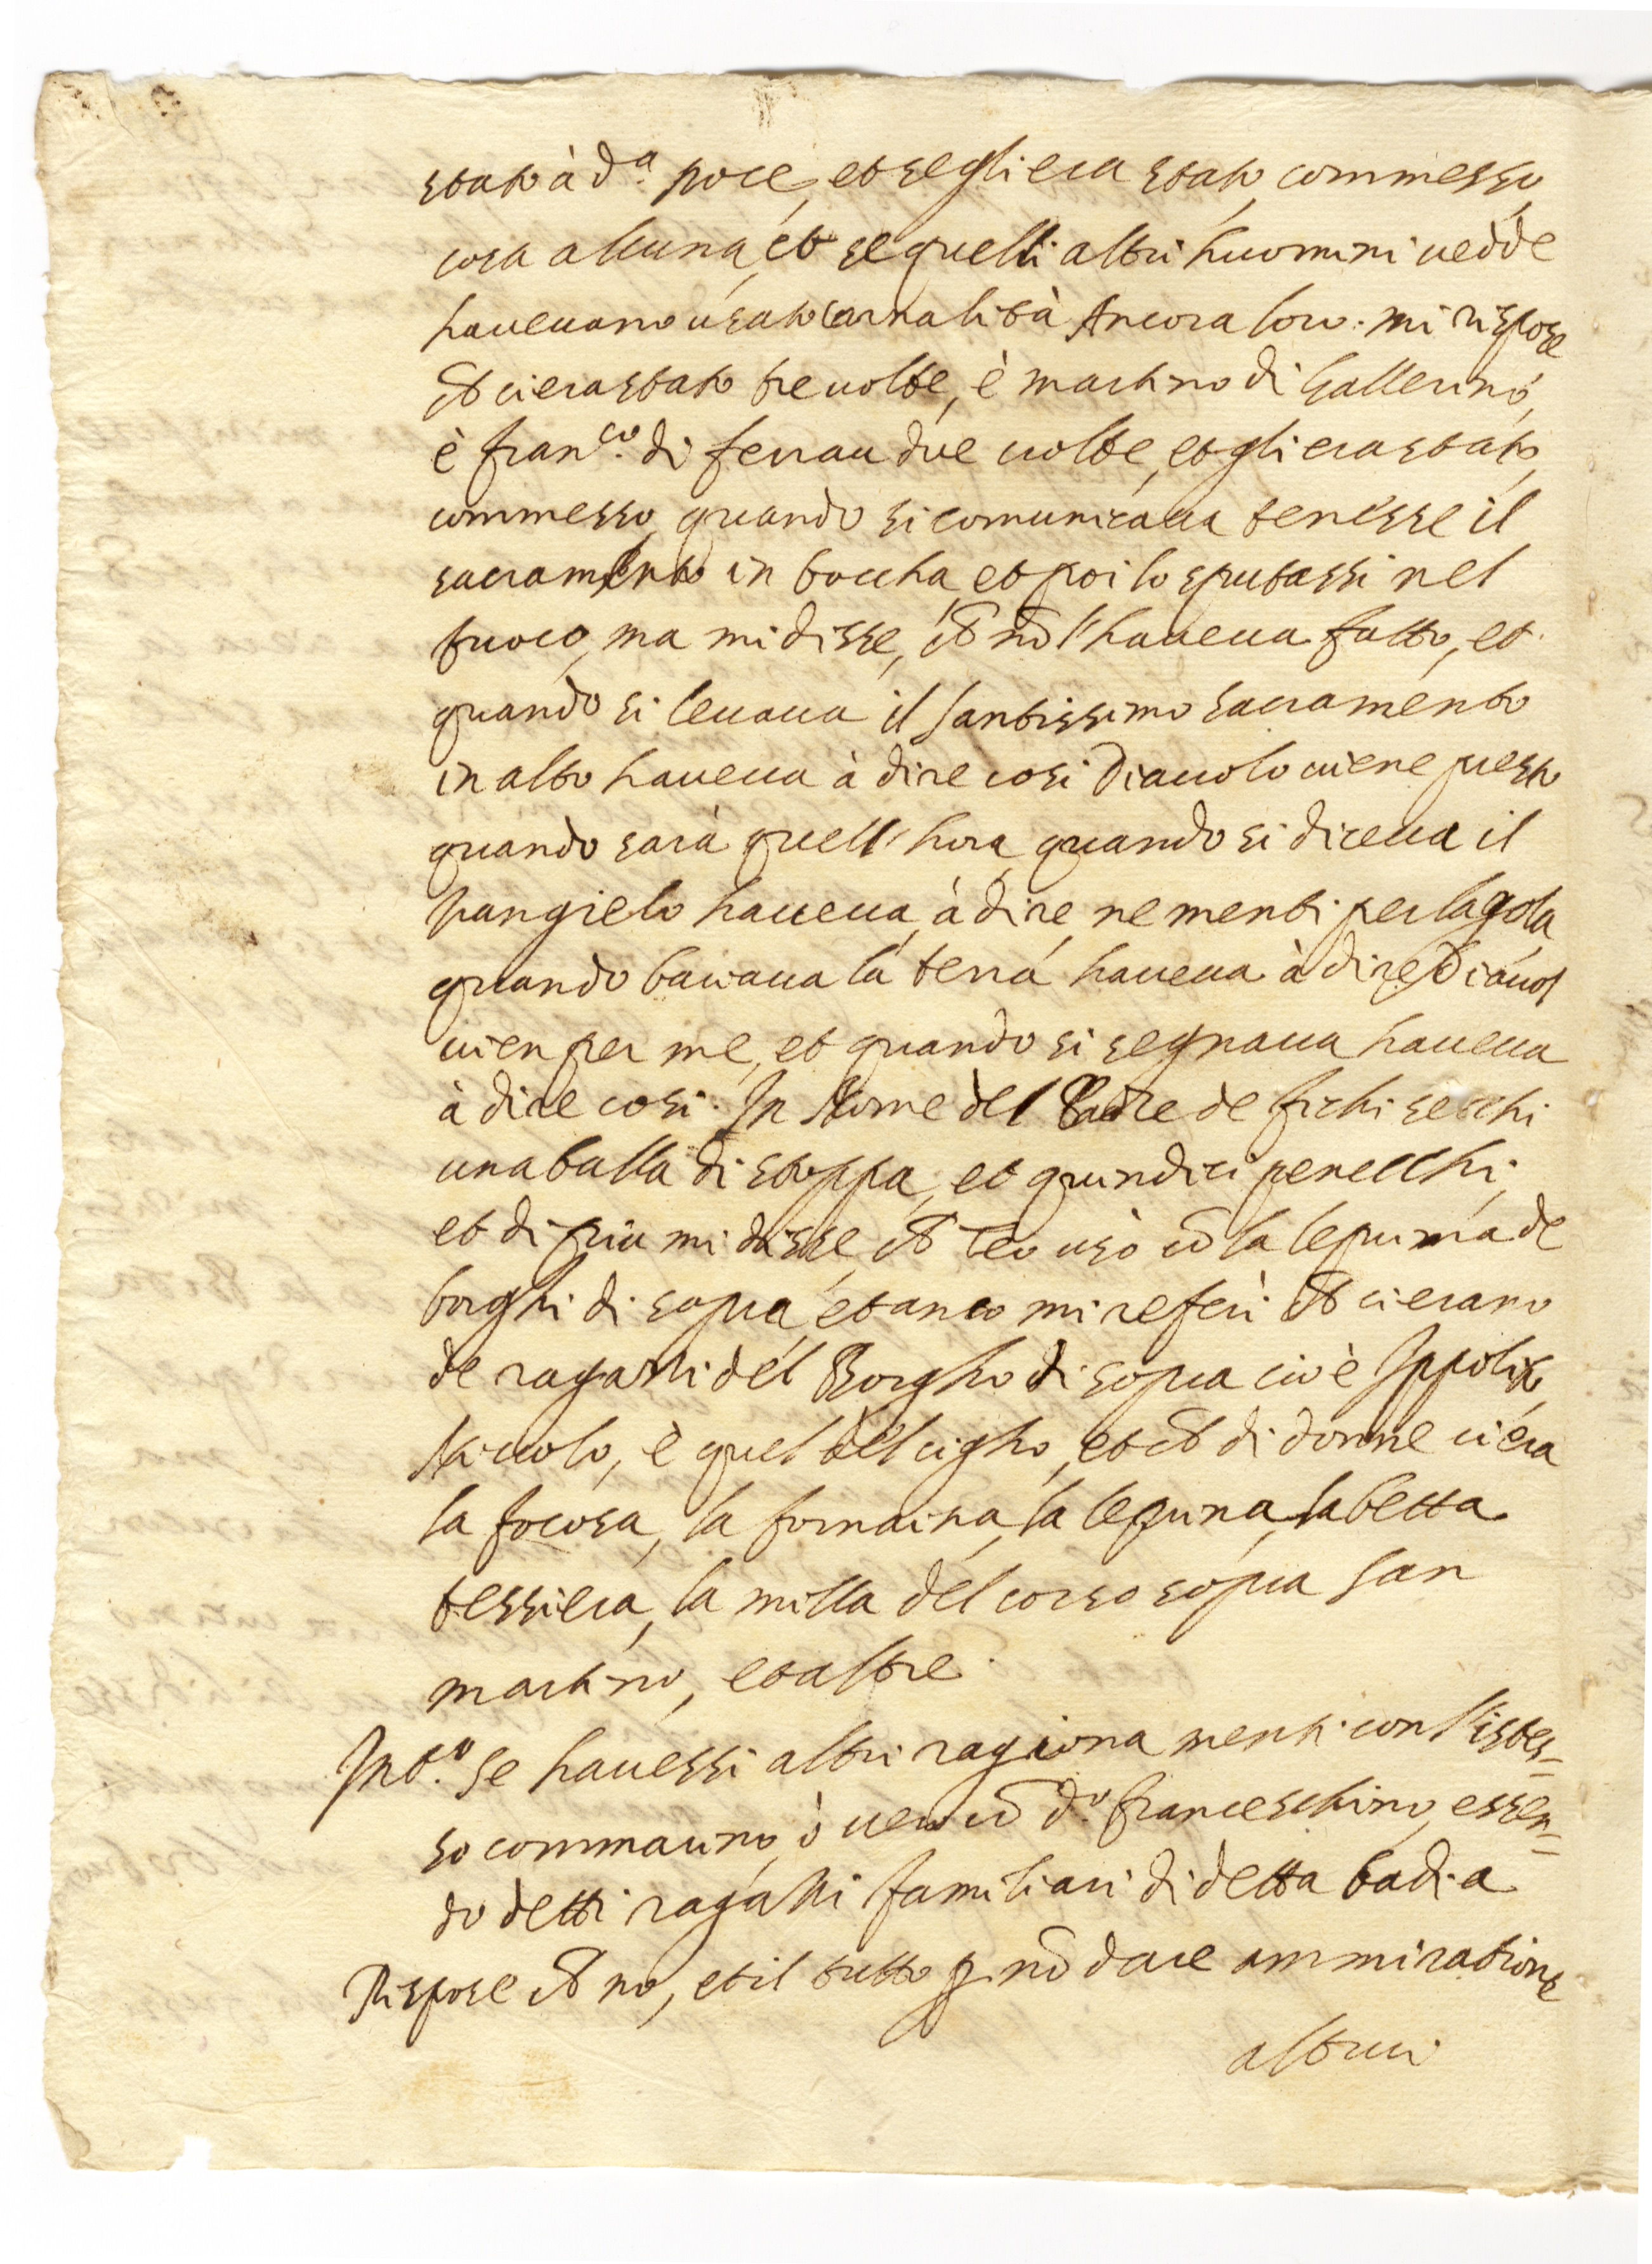 stato à d.a noce, et se gli era stato commesso
cosa alcuna, et se quelli altri huomini uedde
haueuano usato carnalità Ancora loro. mi rispose
ch ci era stato tre uolte, è martino di Gallerino,
è fran.co di ferrau due uolte, et gli era stato
commesso quando si comunicaua tenesse il
sacramento in boccha et poi lo sputassi nel
fuoco, ma mi disse, ch nõ l'haueua fatto, et
quando si leuaua il santissimo sacramento
in alto haueua à dire cosi Diauolo uiene presto
quando sarà quell'hora, quando si diceua il
Vangielo haueua à dire ne menti per la gola
quando baciaua la terra haueua à dire Diauol
uien per me, et quando si segnaua haueua
à dire cosi. In Nome del Padre de fichi secchi
una balla di stoppa, et quindici penecchi,
et di più mi disse ch Teo usò cõ la lepurina de
borghi di sopra, et anco mi referì ch ci erano
de ragazzi del Borgho di sopra cioè Ippolito,
Niccolo, è quel del cigho, et ch di donne ci era
la focosa, la fornaina, la lepurina, la betta
tessiera, la milla del corso sopra san
martino, et altre.
Int.o se hauessi altri ragionamenti con l'istes=
so commauro, ò uero cõ d.o franceschino, essen=
do detti ragazzi familiari di detta badia
Rispose ch no, et il tutto p nõ dare ammiratione
altrui